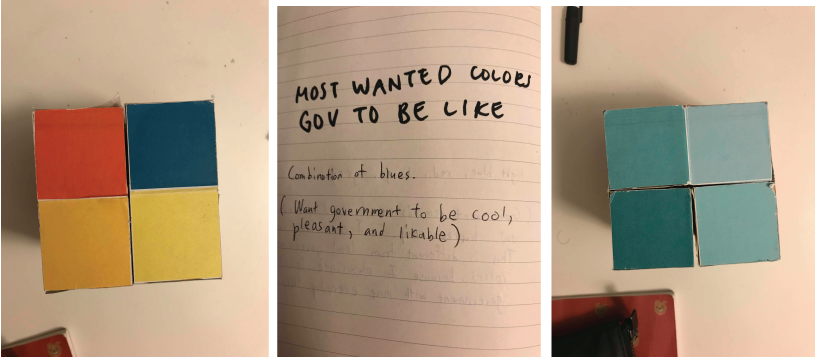 MOST WANTED COLORS
GOV TO BE LIKE
Combination of blues.
( Want government to be cool,
pleasant, and likable )